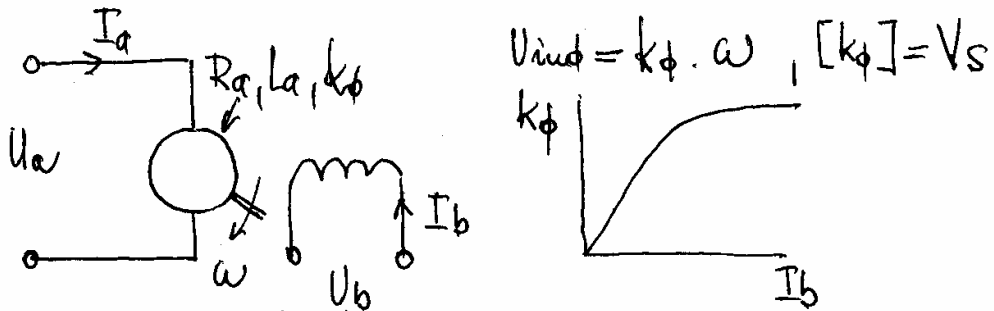 Ia
Ra, La, kϕ
Ua
ω
Ub
Ib
Uind = kϕ · ω , [kϕ] = Vs
kϕ
Ib